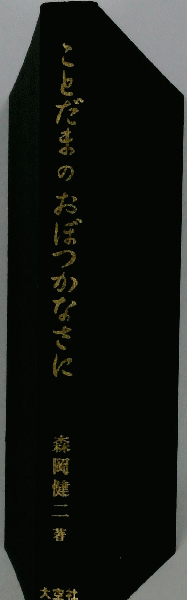 ことだまのおぼつかなさに
森岡健二 著
大空社